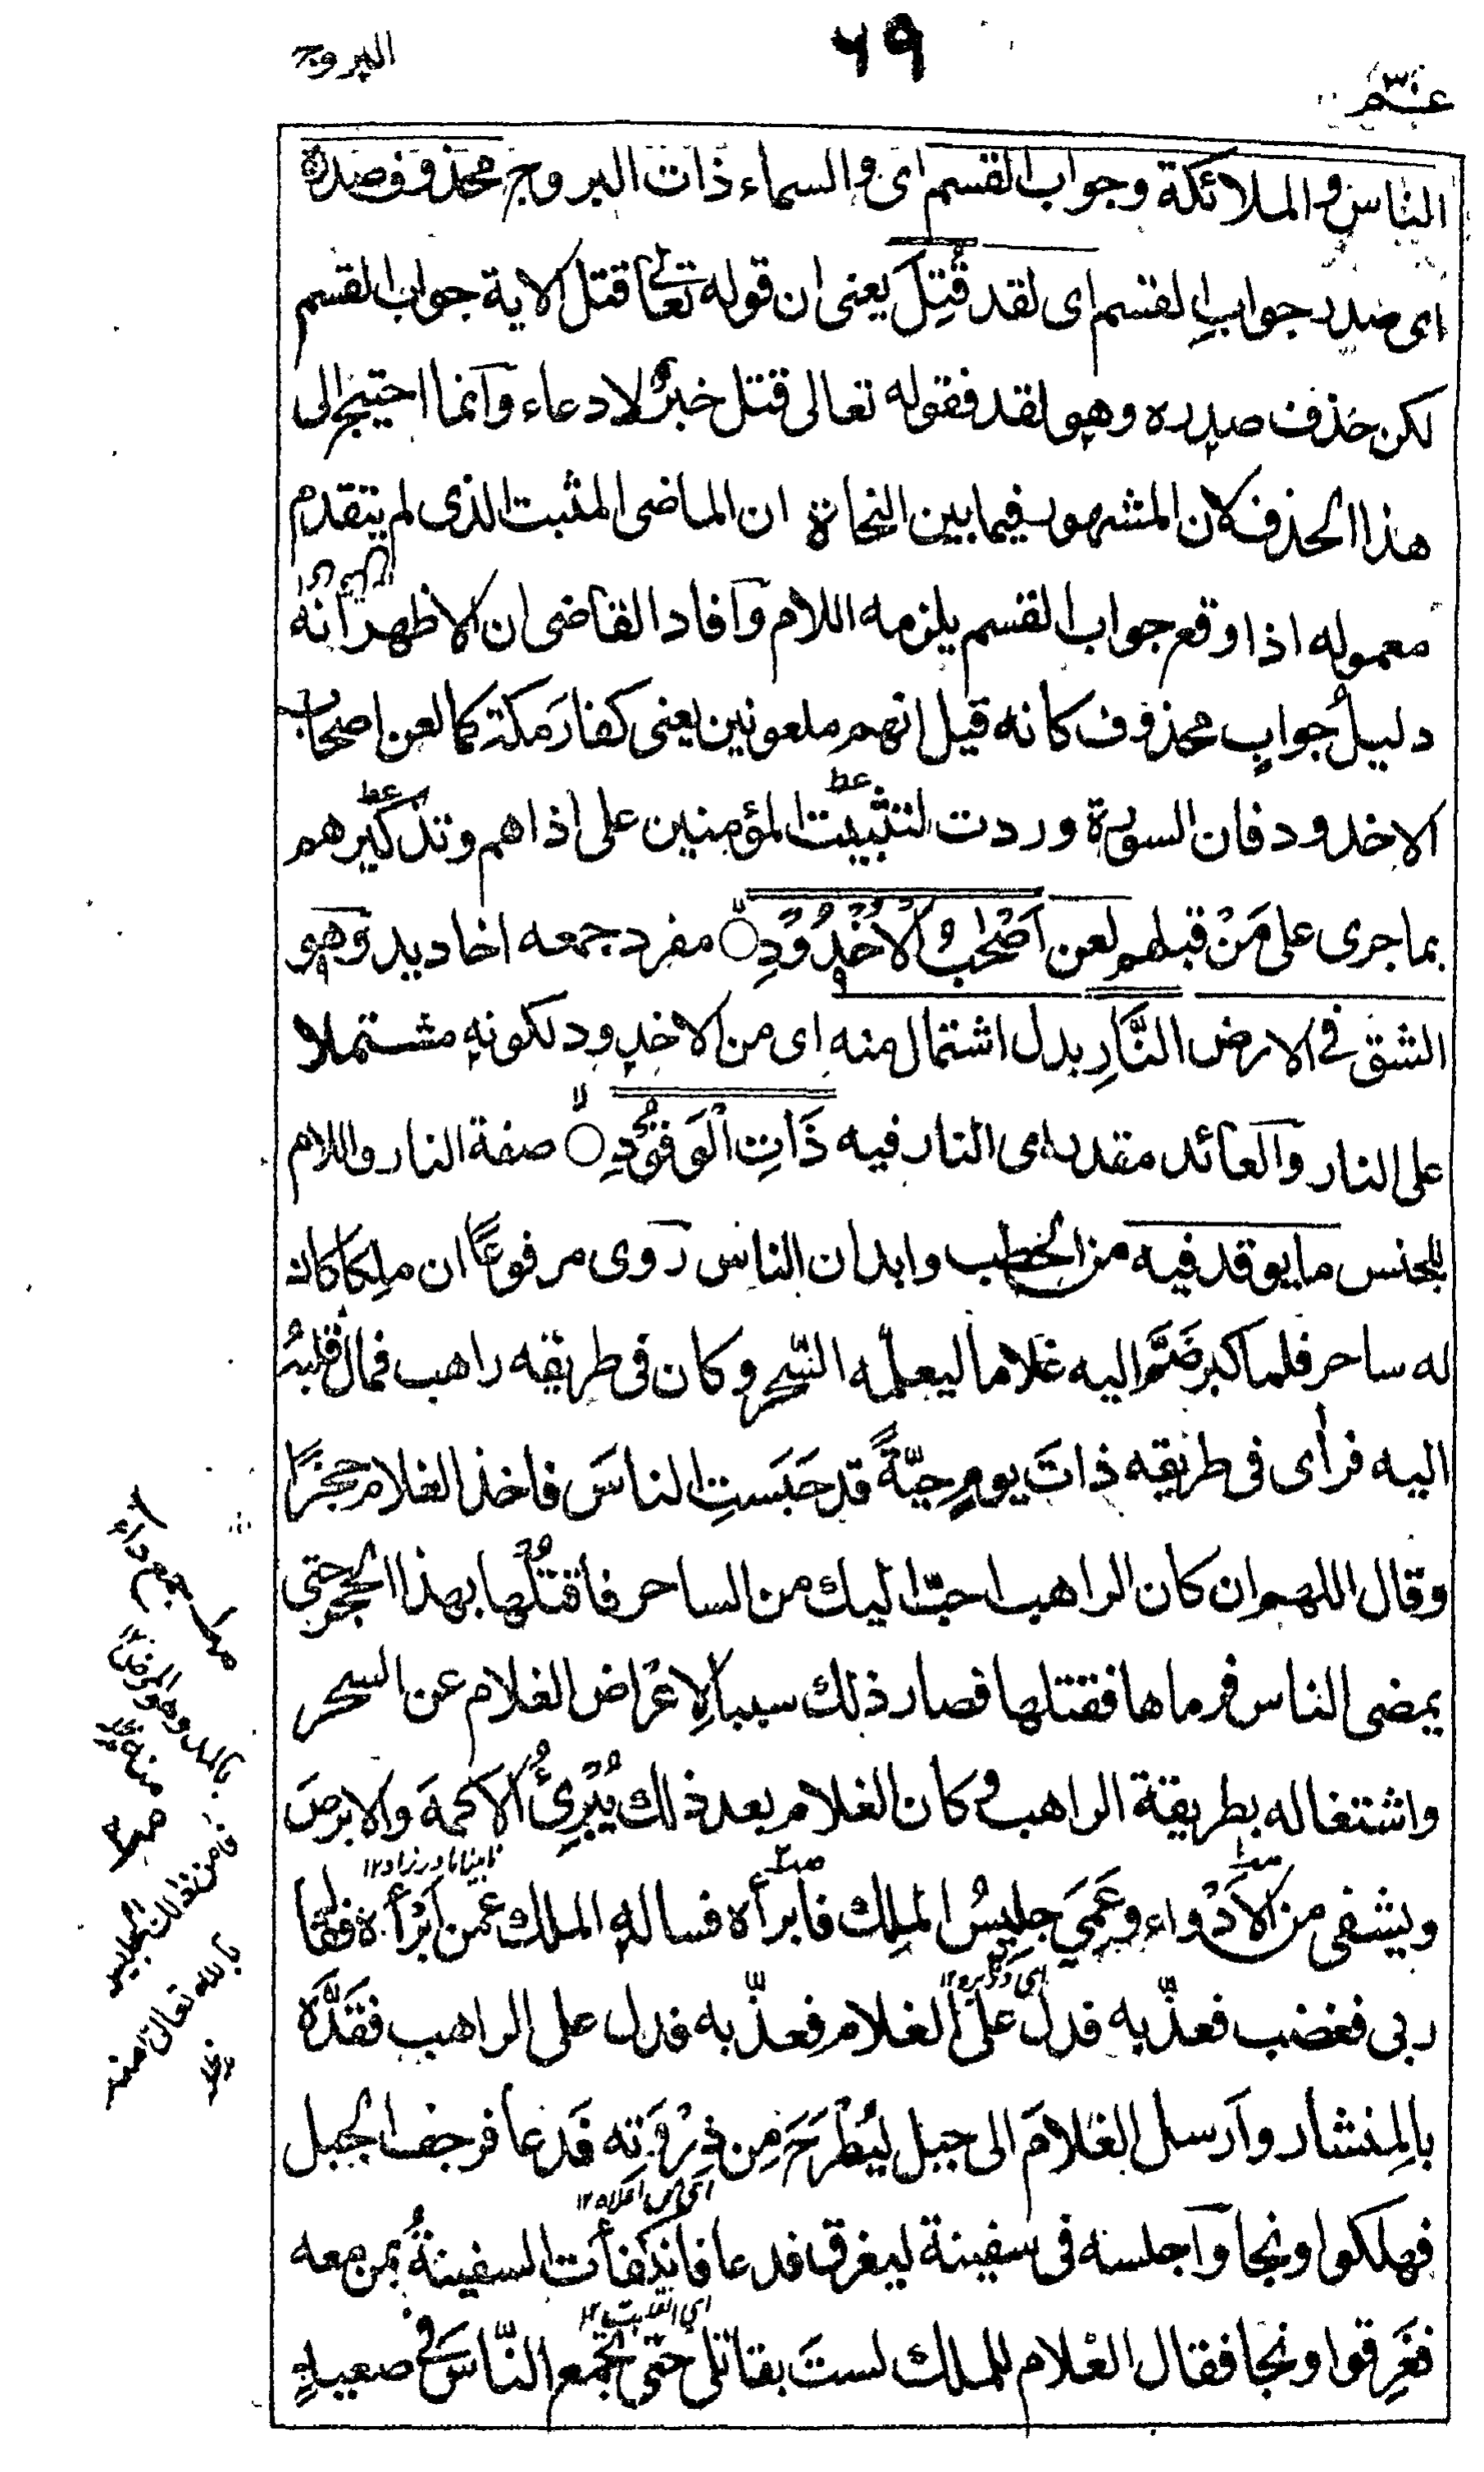 عـم ٣٠
٦٩
البروج
الناس والملائكة وجواب القسم اى والسماء ذات البروج محذوف صدره
اى صدر جواب القسم اى لقد قُتِلَ يعنى ان قوله تعالى قتل الاية جواب القسم
لكن حذف صدره وهو لقد فقوله تعالى قتل خبرٌ لا دعاء وانما احتيج الى
هذا الحذف لان المشهور فيما بين النحاة ان الماضى المثبت الذى لم يتقدم
معموله اذا وقع جواب القسم يلزمه اللام وافاد القاضى ان الاظهر انه
دليلُ جوابٍ محذوف كانه قيل انهم ملعونين يعنى كفار مكة كما لعن اصحاب
الاخدود فان السورة وردت لتثبيت المؤمنين على اذاهم وتذكيرهم
عط
عط
بما جرى على مَنْ قبلهم لعن اَصْحٰبُ الْاُخْدُوْدِ ۙ مفرد جمعه اخاديد وهو
الشق فى الارض النَّارِ بدل اشتمال منه اى من الاخدود لكونه مشتملا
على النار والعائد مقدر اى النار فيه ذَاتِ الْوَقُوْدِ ۙ صفة النار واللام
للجنس ما يوقد فيه من الحطب وابدان الناس روى مرفوعًا ان ملكا كان
له ساحر فلما كبر ضَمَّ اليه غلاما ليعلمه السّحر وكان فى طريقه راهب فمال قلبُه
اليه فرأى فى طريقه ذاتَ يومٍ حيّةً قد حَبَستِ الناسَ فاخذ الغلام حجرًا
وقال اللهم ان كان الراهب احبّ اليك من الساحر فاقتُلها بهذا الحجر حتى
يمضى الناس فرماها فقتلها فصار ذلك سببا لاِعْراض الغلام عن السحر
واشتغاله بطريقة الراهب وكان الغلام بعد ذلك يُبْرِئُ الاَكمهَ والابرصَ
نابينا مادرزاد ١٢
ويشفى من الاَدْواء وعَمِيَ جليسُ المَلِك فابرأه فساله الملك عمن اَبْرَأه فقال
ربى فغضب فعذّبه فدل على الغلام فعذّبه فدل على الراهب فقَدَّه
بالمِنشار وارسل الغلامَ الى جبل ليُطْرَحَ مِن ذِرْوَتِه فَدعا فرجف الجبل
اى من اعلاه ١٢
فهلكوا ونجا واجلسه فى سفينة ليغرق فدعا فانكفأت السفينةُ بمن معه
اى انقلبت ١٢
فغَرِقوا ونجا فقال الغلام للملك لستَ بقاتلى حتى تجمع النّاسَ فى صعيدٍ
جمع داء
بالمد وهو المرض ١٢
منه
بالله تعالى ١٢ منه